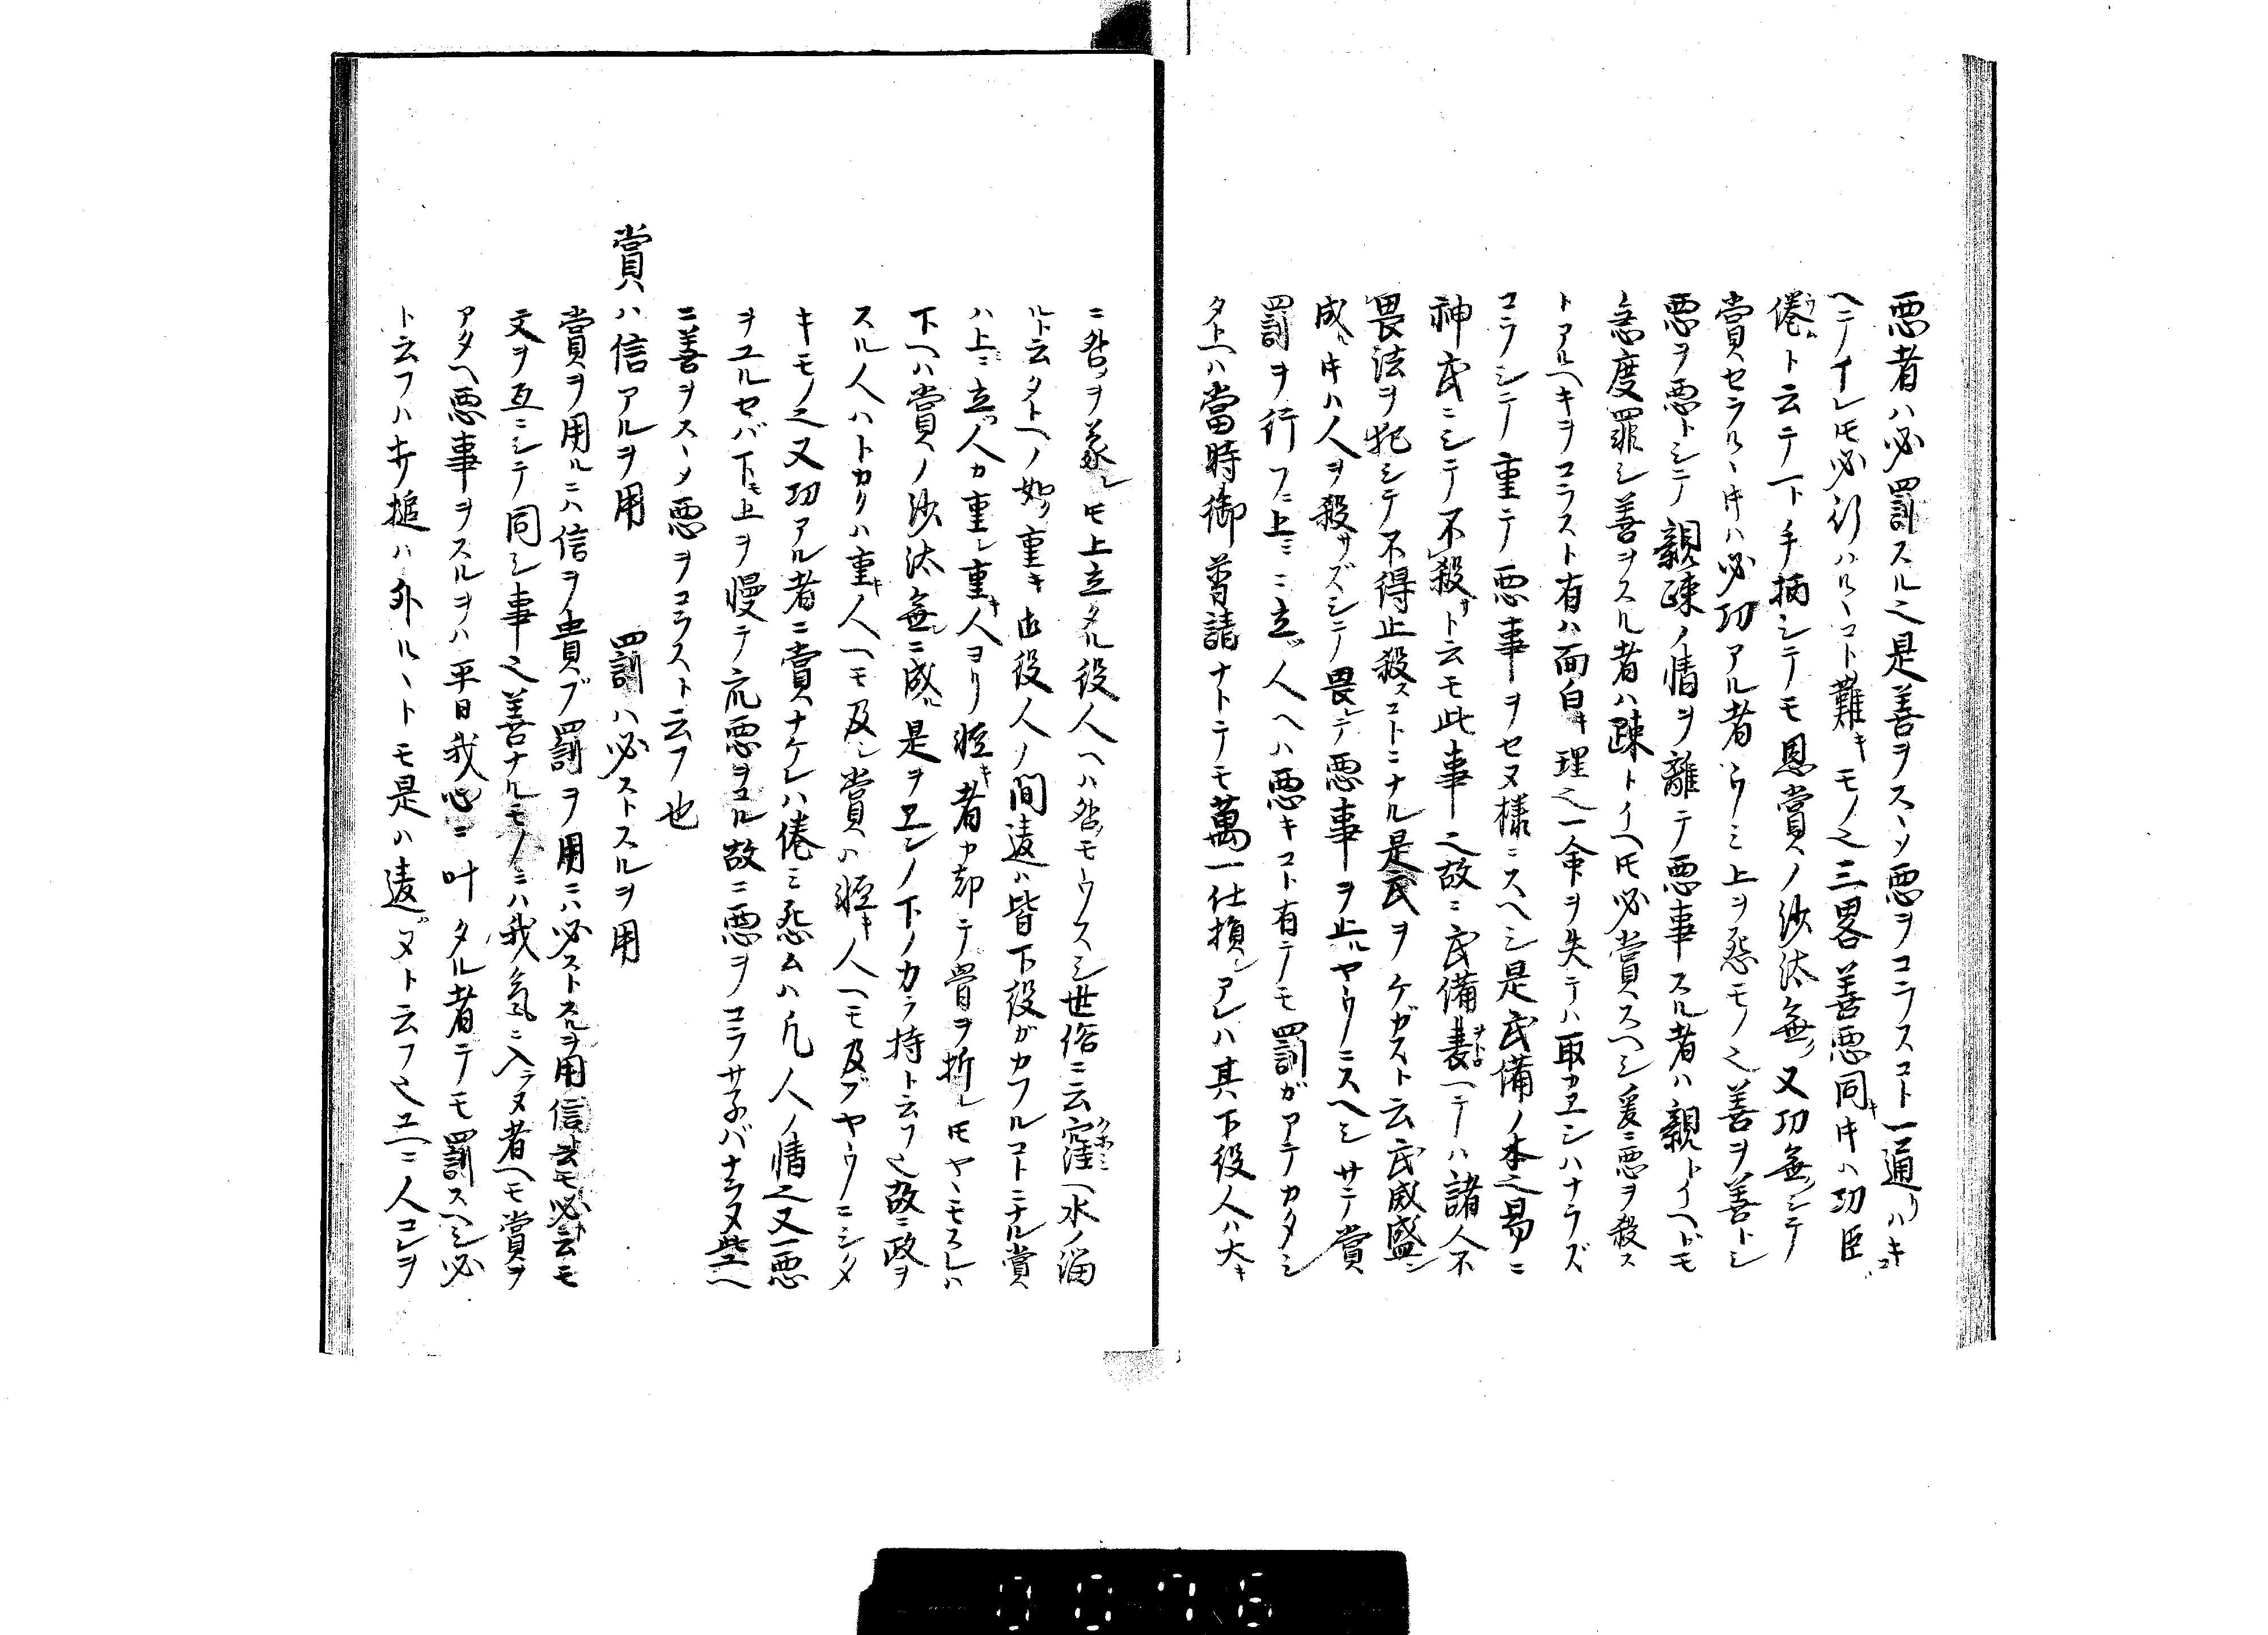 悪者ハ必罰スル之是善ヲスヽメ悪ヲコラスコト一通リハキコ
ヘテイレ𪜈必行ハルヽコト難キモノ之三畧善悪同キ𪜈ハ功臣
倦ト云テ一ト手柄シテモ恩賞ノ沙汰無ク又功無シテ
賞セラルヽ𪜈ハ必功アル者ウミ上ヲ怨モノ之善ヲ善トシ
悪ヲ悪トシテ親疎ノ情ヲ離テ悪事スル者ハ親トイヘドモ
急度罪シ善ヲスル者ハ疎トイヘ𪜈必賞スヘシ爰ニ悪ヲ殺ス
トアルヘキヲコラスト有ハ面白キ理之一命ヲ失テハ取カヱシハナラズ
コラシテ重テ悪事ヲセヌ様ニスヘシ是武備ノ本之易ニ
神武ニシテ不殺サト云モ此事之故ニ武備衰ヘテハ諸人不
畏法ヲ犯シテ不得止殺スコトニナル是武ヲケガスト云武威盛ン
成ル𪜈ハ人ヲ殺サズシテ畏レテ悪事ヲ止ルヤウニスヘシサテ賞
罰ヲ行フニ上ミニ立ツ人ヘハ悪キコト有テモ罰ガアテカタシ
タトヘハ當時御普請ナトニテモ萬一仕損シアレハ其下役人ハ大キ
ニ咎ヲ蒙レ𪜈上立タル役人ヘハ咎モウスシ世俗ニ云窪ヘ水ノ溜
ルト云タトヘノ如ク重キ御役人ノ間違ハ皆下役ガカフルコトニナル賞
ハ上ニ立ツ人カ重シ重キ人ヨリ軽キ者カ却テ骨ヲ折レ𪜈ヤヽモスレハ
下ヘハ賞ノ沙汰無シニ成ル是ヲヱンノ下ノカラ持ト云フ之故ニ政ヲ
スル人ハトカクハ重キ人ヘモ及シ賞ハ軽キ人ヘモ及ブヤウニシタ
キモノ之又功アル者ニ賞ナケレハ倦ミ怨ムハ凡人ノ情之又一悪
ヲユルセバ下モ上ヲ慢テ衆悪ヲコル故ニ悪ヲコラサネバナラヌ此ヱヘ
ニ善ヲスヽメ悪ヲコラスト云フ也
賞ハ信アルヲ用　罰ハ必ストスルヲ用
賞ヲ用ルニハ信ヲ貴ブ罰ヲ用ニハ必ストスルヲ用信ト云モ必ト云モ
文ヲ互ニシテ同シ事之善ナルモノニハ我氣ニ入ラヌ者ヘモ賞ヲ
アタヘ悪事ヲスルヲハ平日我心ニ叶タル者テモ罰スヘシ必
ト云フハキ槌ハ外ルヽトモ是ハ違ガヌト云フ之ユヘニ人コレヲ